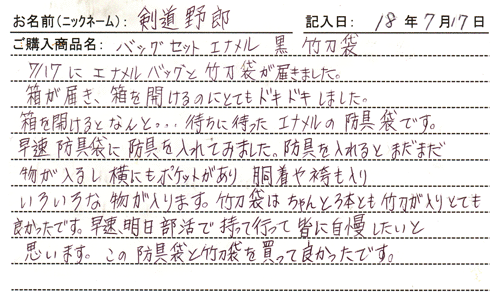 お名前(ニックネーム): 剣道野郎 記入日: 18年7月17日
ご購入商品名: バッグセット エナメル 黒 竹刀袋
7/17に エナメルバッグと竹刀袋が届きました。
箱が届き、箱を開けるのにとてもドキドキしました。
箱を開けるとなんと・・・待ちに待ったエナメルの防具袋です。
早速防具袋に防具を入れてみました。防具を入れるとまだまだ
物が入るし横にもポケットがあり 胴着や袴も入り
いろいろな物が入ります。竹刀袋はちゃんと3本とも竹刀が入りとても
良かったです。早速、明日部活で持って行って皆に自慢したいと
思います。この防具袋と竹刀袋を買って良かったです。